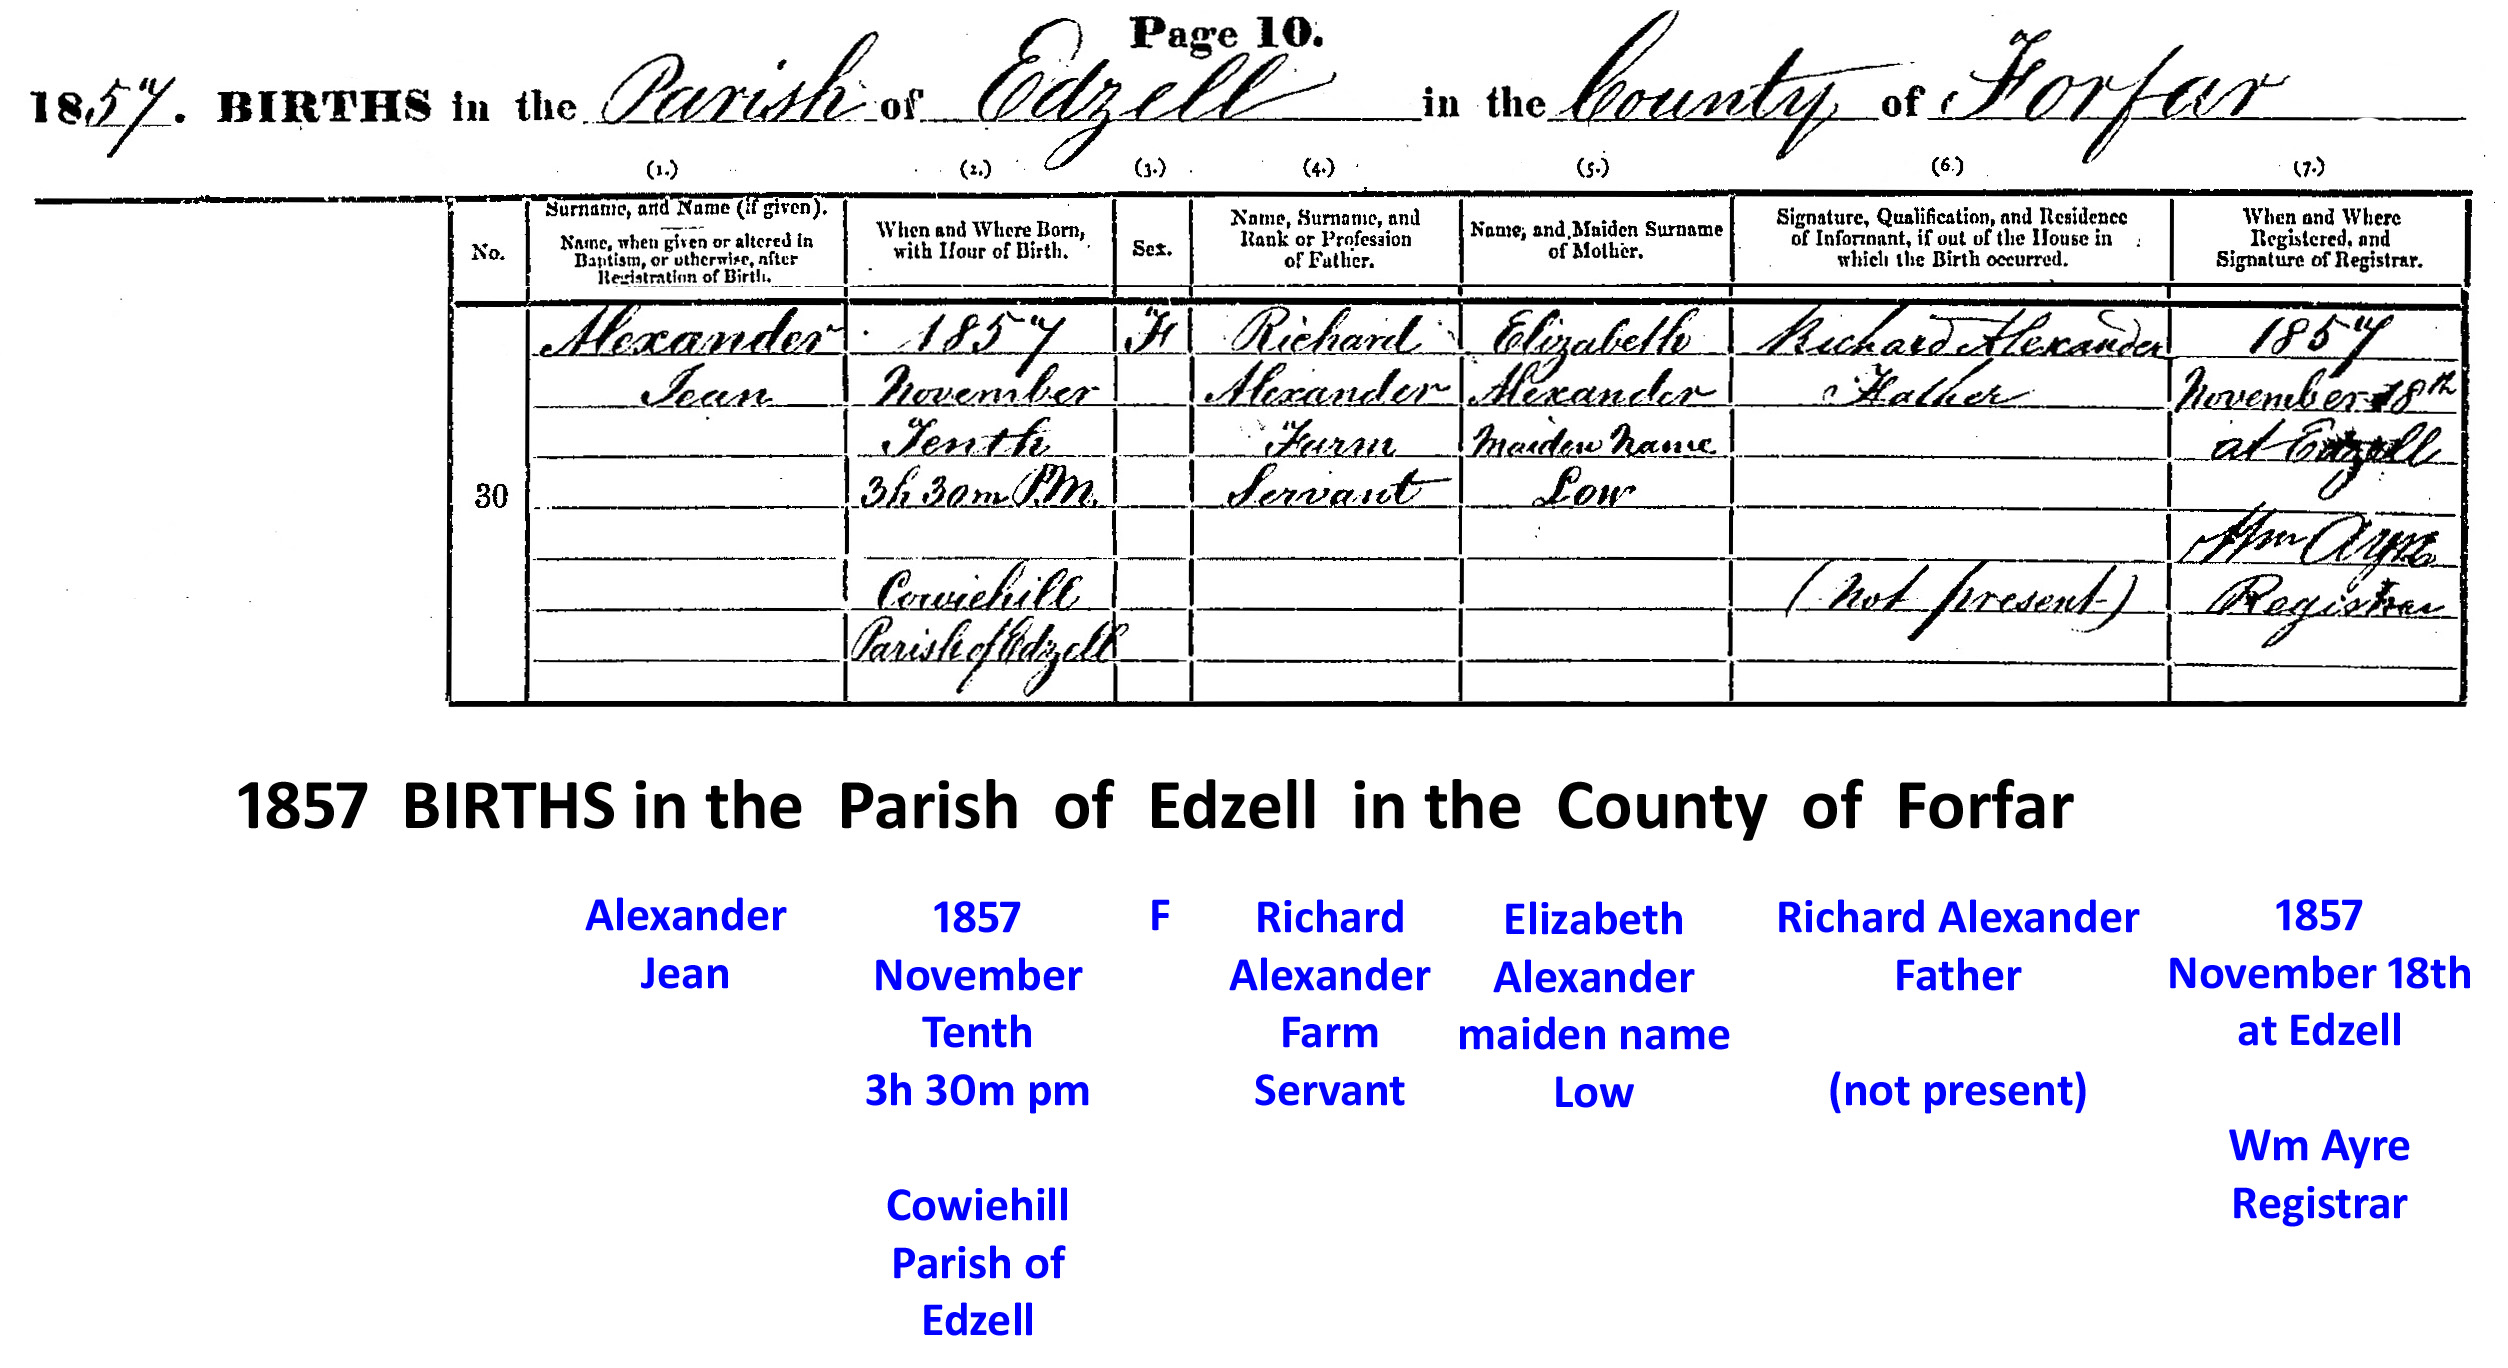 Page 10.
1857. BIRTHS in the Parish of Edzell in the County of Forfar
(1.) (2.) (3.) (4.) (5.) (6.) (7.)
No.
Surname, and Name (if given).
Name, when given or altered in
Baptism, or otherwise, after
Registration of Birth.
When and Where Born,
with Hour of Birth.
Sex.
Name, Surname, and
Rank or Profession
of Father.
Name, and Maiden Surname
of Mother.
Signature, Qualification, and Residence
of Informant, if out of the House in
which the Birth occurred.
When and Where
Registered, and
Signature of Registrar.
30
Alexander
Jean
1857
November
Tenth
3h 30m P.M.
Cowiehill
Parish of Edzell
F
Richard
Alexander
Farm
Servant
Elizabeth
Alexander
Maiden Name
Low
Richard Alexander
Father
(Not present)
1857
November 18th
at Edzell
Wm Ayre
Registrar
1857 BIRTHS in the Parish of Edzell in the County of Forfar
Alexander
Jean
1857
November
Tenth
3h 30m pm
Cowiehill
Parish of
Edzell
F
Richard
Alexander
Farm
Servant
Elizabeth
Alexander
maiden name
Low
Richard Alexander
Father
(not present)
1857
November 18th
at Edzell
Wm Ayre
Registrar